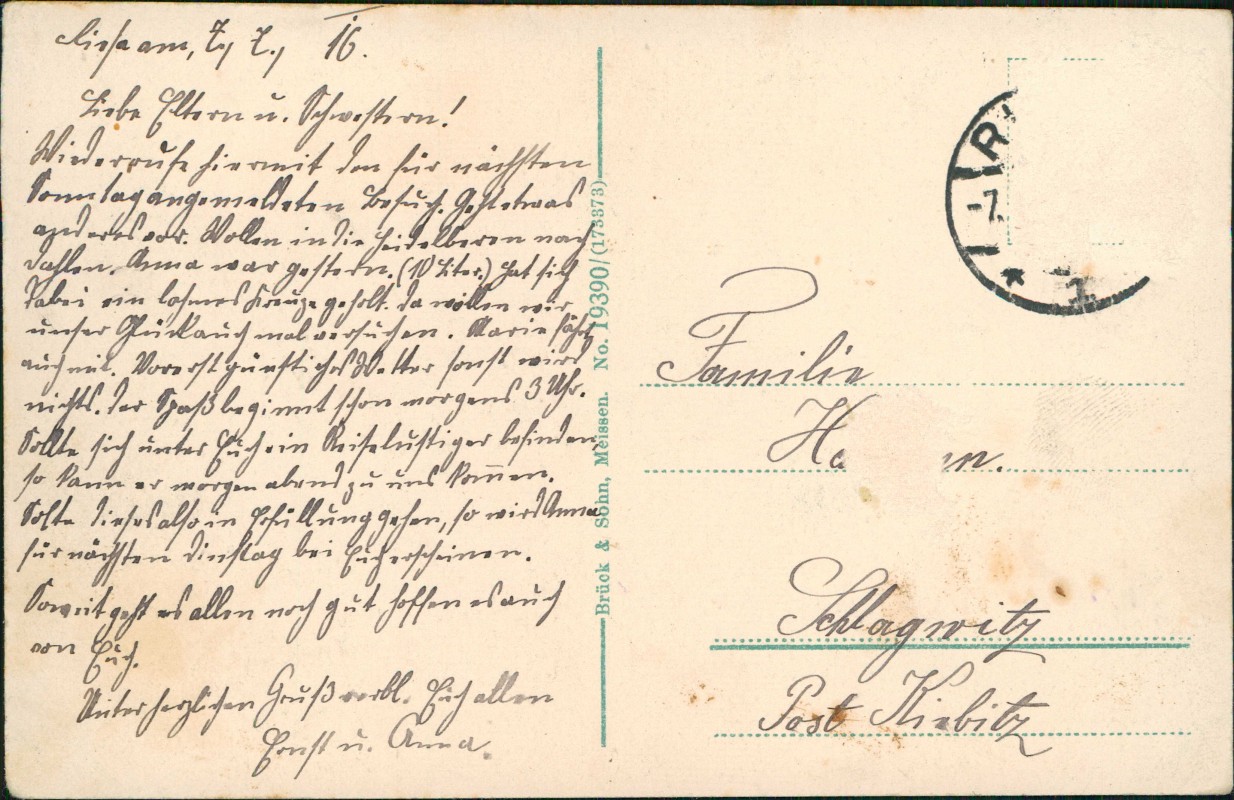 Riesa am, 7., 7., 16.
Liebe Eltern u. Schwestern!
Wiederrufe hiermit den für nächsten
Sonntag angemeldeten Besuch. Geht etwas
anderes vor. Wollen in die Heidelberen nach
Dahlen. Anna war gestern. (10 Liter.) hat sich
dabei ein lahmes Kreuze geholt. da wollen wir
unser Glück auch mal versuchen. Marie fährt
auch mit. Vorerst günstiches Wetter sonst wird
nichts. der Spaß beginnt schon morgens 3 Uhr.
Sollte sich unter Euch ein Reiselustiger befinden
so kann er morgen abend zu uns kommen.
Solte dieses also in Erfüllung gehen, so wird Anna
für nächsten Dinstag bei Euch erscheinen.
Soweit geht es allen noch gut hoffen es auch
von Euch.
Unter herzlichen Gruß verbl. Euch allen
Ernst u. Anna.
Brück & Sohn, Meissen. No. 19390/(173373)
R
-7.
Familie
Ha n.
Schlagwitz
Post Kiebitz